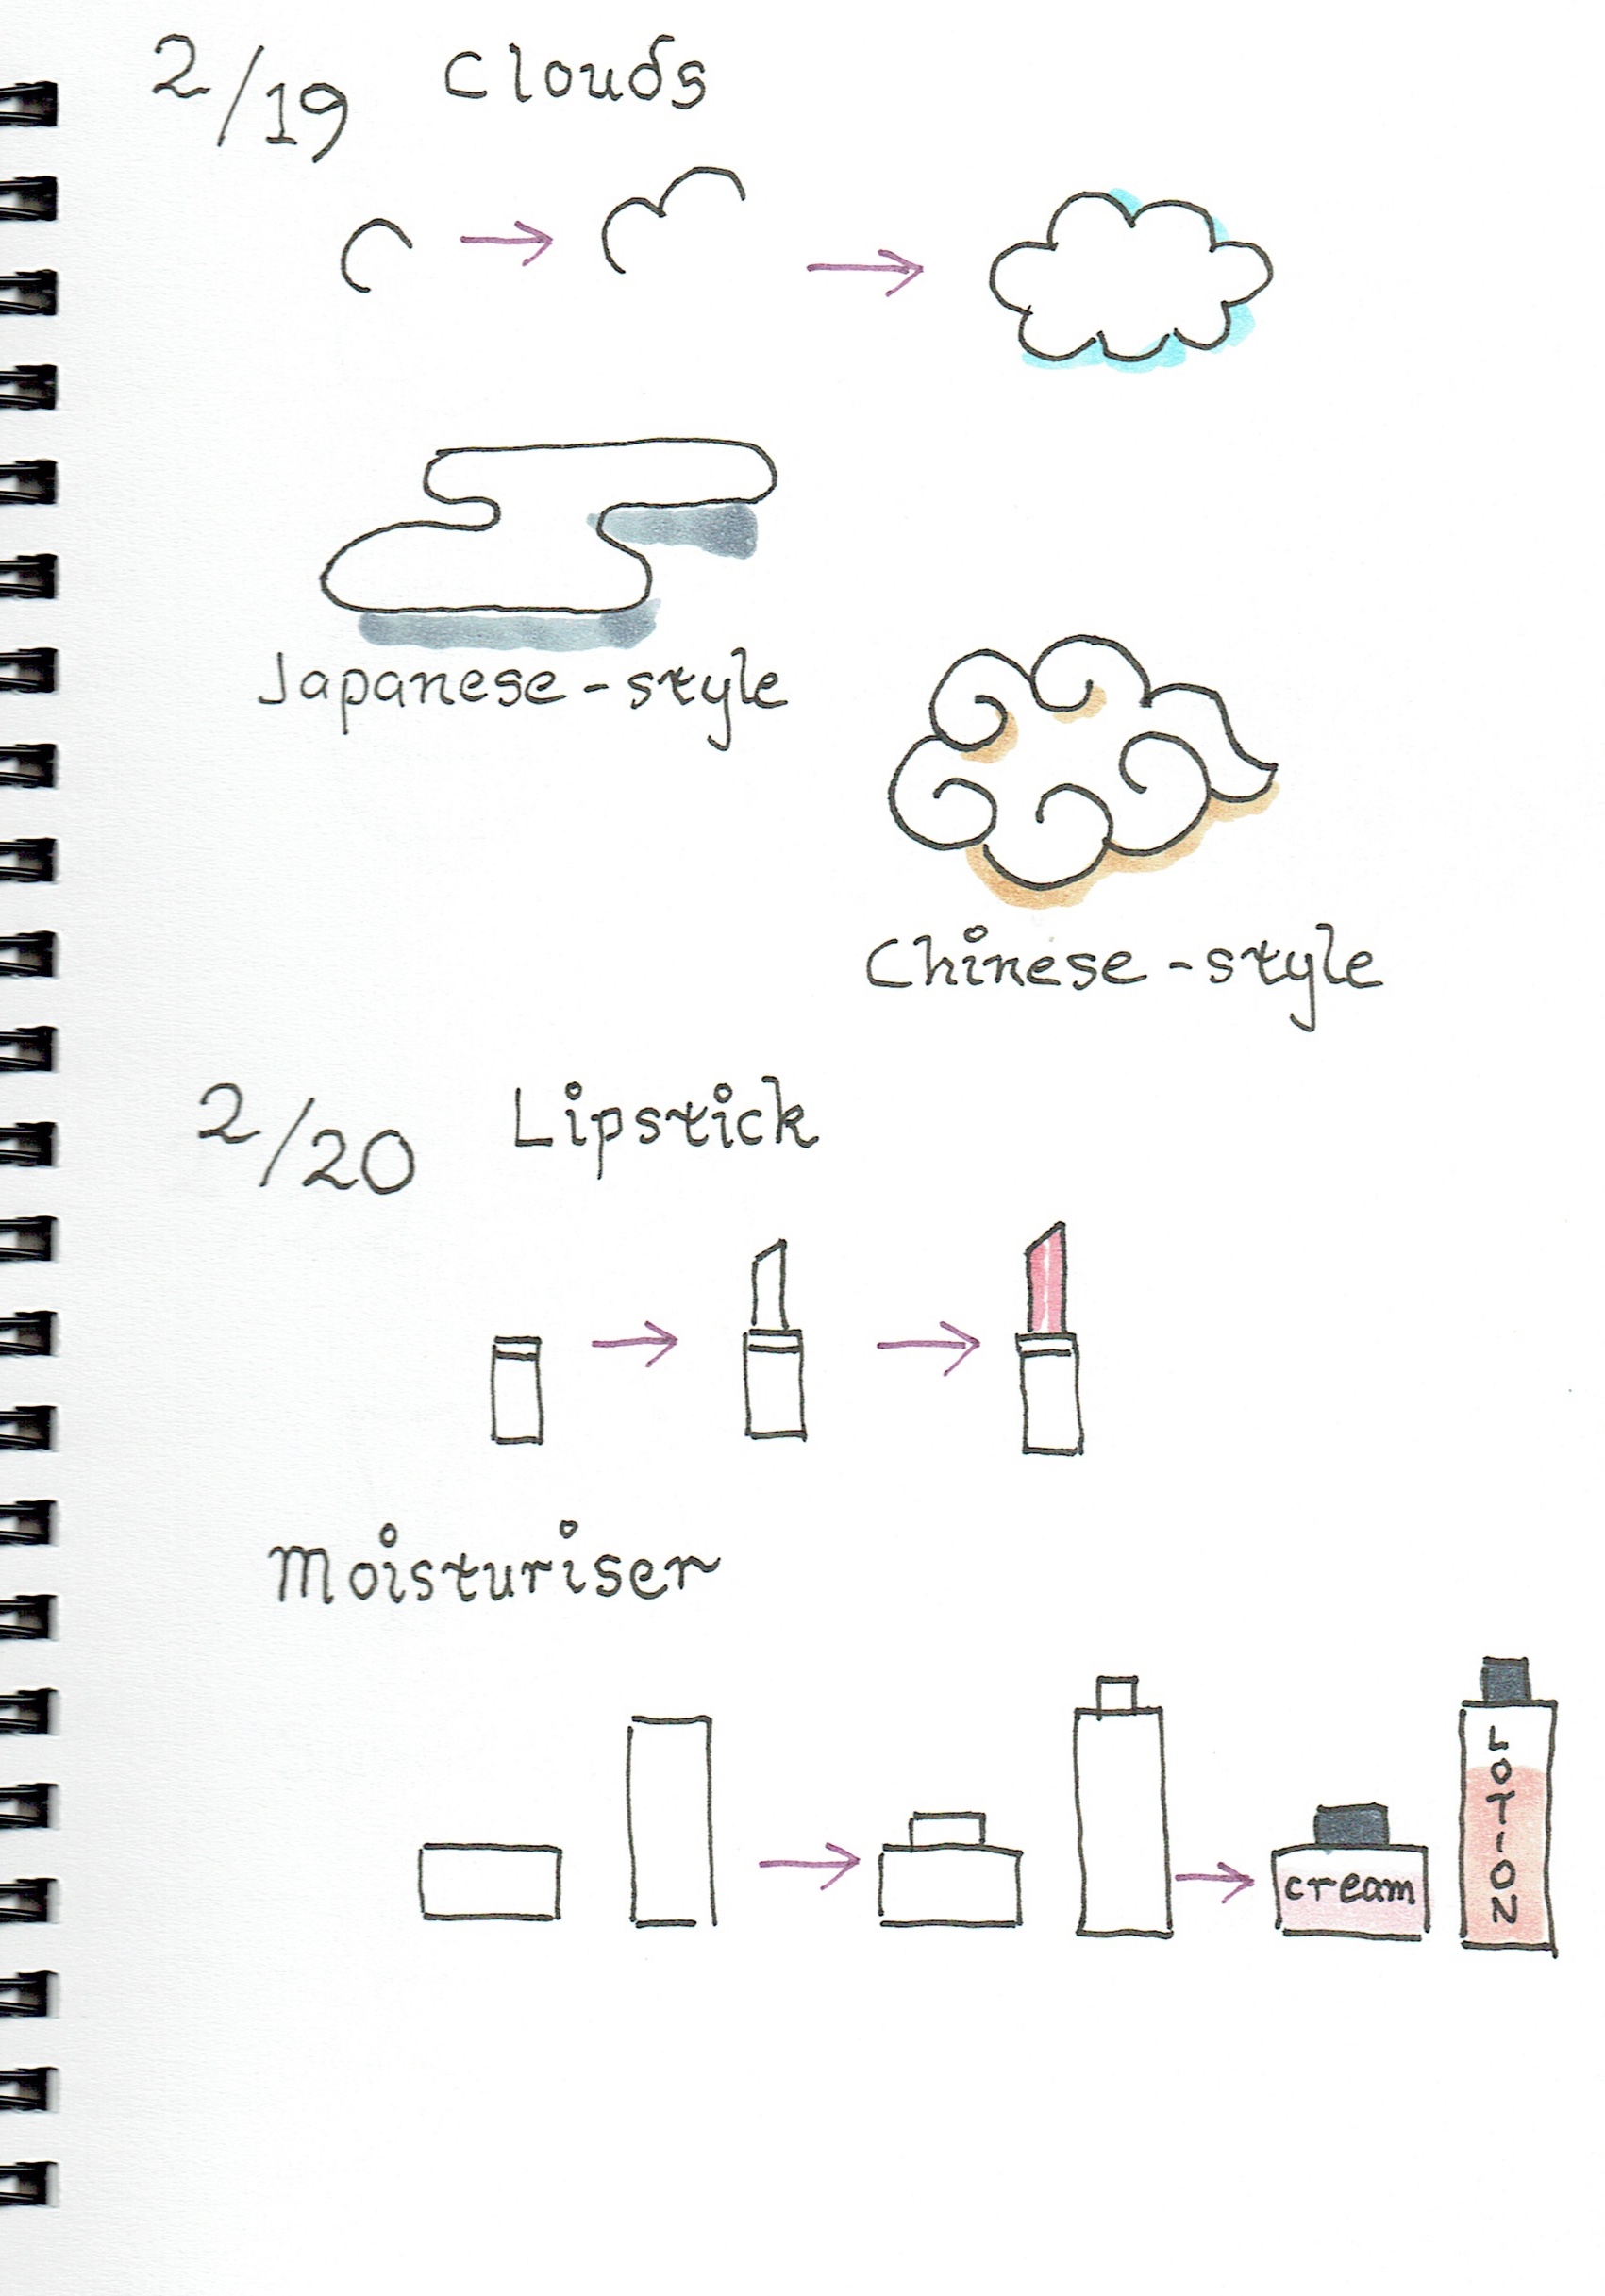 2/19 Clouds
Japanese-style
Chinese-style
2/20 Lipstick
Moisturiser
cream
LOTION